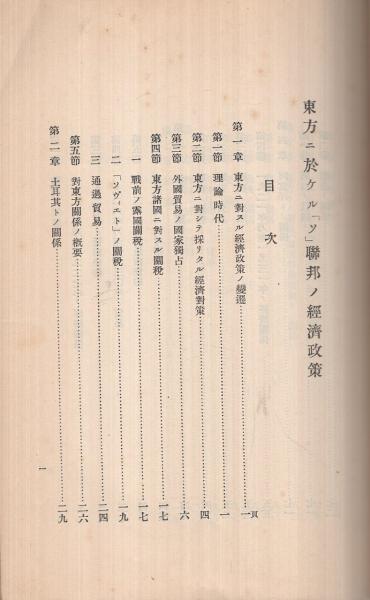 東方ニ於ケル「ソ」聯邦ノ經濟政策
目次
頁
第一章 東方ニ對スル經濟政策ノ變遷……一
第一節 理論時代……一
第二節 東方ニ對シテ採リタル經濟對策……四
第三節 外國貿易ノ國家獨占……六
第四節 東方諸國ニ對スル關稅……一七
一 戰前ノ露國關稅……一七
二 「ソヴィエト」ノ關稅……一九
三 通過貿易……二四
第五節 對東方關係ノ概要……二六
第二章 土耳其トノ關係……二九
一